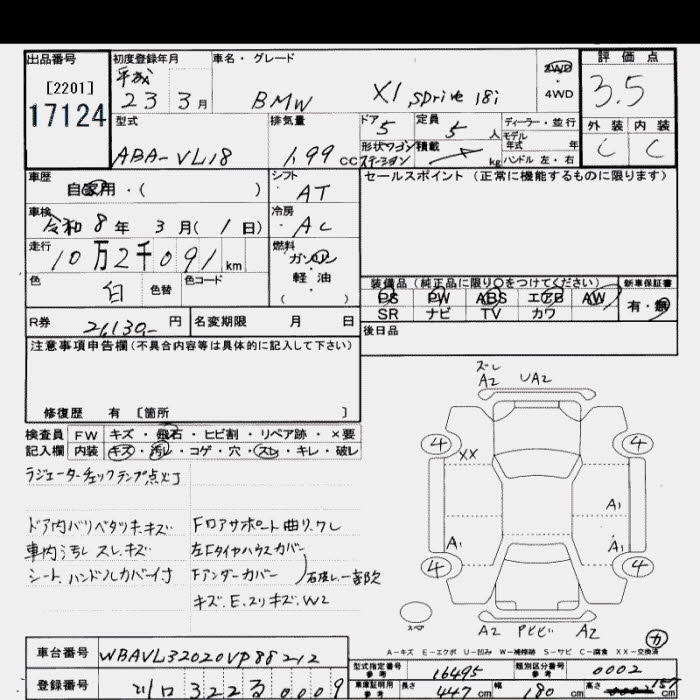 出品番号
[2201]
17124
初度登録年月
平成
23 3月
車名・グレード
BMW X1 sDrive 18i
2WD
・
4WD
評価点
3.5
外装 内装
C C
型式
ABA-VL18
排気量
1.99 cc
ドア 5
定員 5 人
形状 ワゴン
ステーション
積載 kg
ディーラー・並行
モデル
年式 年
ハンドル 左・右
車歴
自家用・( )
シフト
AT
車検
令和 8年 3月(1日)
冷房
AC
走行
10万2千091 km
燃料
ガソリン
・
軽油
( )
色 白 色替 色コード
セールスポイント(正常に機能するものに限ります)
装備品(純正品に限り○をつけてください)
PS PW ABS エアB AW
SR ナビ TV カワ
新車保証書
有・無
R券 26,130- 円 名変期限 月 日
後日品
注意事項申告欄(不具合内容等は具体的に記入して下さい)
修復歴 有 [箇所 ]
検査員 FW キズ・飛石・ヒビ割・リペア跡・×要
記入欄 内装 キズ・汚レ・コゲ・穴・スレ・キレ・破レ
ラジエーターチェックランプ点灯
ドア内バリベタツキ.キズ
車内汚レ スレ.キズ
シート.ハンドルカバー付
Fロアサポート曲リ.ワレ
左Fタイヤハウスカバー
Fアンダーカバー
石皮レ.一部欠
キズ.E.スリキズ.W2
ズレ
A2 UA2
4 4
XX
A1
A1 A1
4 4
スペア
A2 Pヒビ A2
カ
A-キズ E-エクボ U-凹み W-補修跡 S-サビ C-腐食 XX-交換済
車台番号 WBAVL32020VP88212
登録番号 川口 322 ろ 0009
型式指定番号
参考
16495
類別区分番号
参考
0002
車庫証明用
参考
長さ 447 cm 幅 180 cm 高さ 157 cm